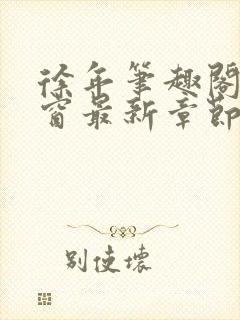 徐年筆趣閣
窗最新章節
别使壞